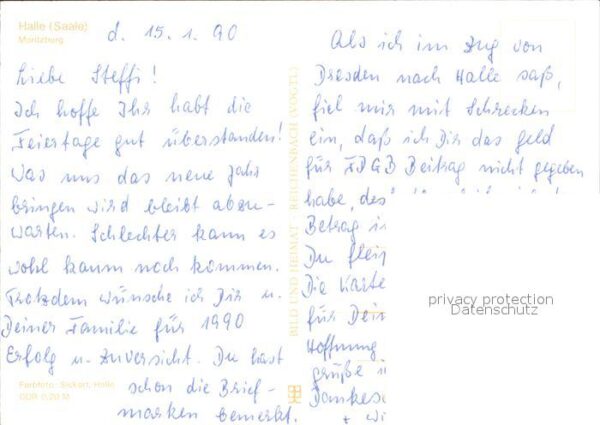 Halle (Saale)
Moritzburg
d. 15. 1. 90
Liebe Steffi!
Ich hoffe Ihr habt die
Feiertage gut überstanden!
Was uns das neue Jahr
bringen wird bleibt abzu-
warten. Schlechter kann es
wohl kaum noch kommen.
Trotzdem wünsche ich Dir u.
Deiner Familie für 1990
Erfolg u. Zuversicht. Du hast
schon die Brief-
marken bemerkt.
Farbfoto: Siekert, Halle
DDR 0,20 M
BILD UND HEIMAT REICHENBACH (VOGTL)
Als ich im Zug von
Dresden nach Halle saß,
fiel mir mit Schrecken
ein, daß ich Dir das Geld
für FDGB Beitrag nicht gegeben
habe, des
Betrag i
Du
Die Karte
für Dein
Hoffnung
Grüße
Dankes
+ Wi
privacy protection
Datenschutz